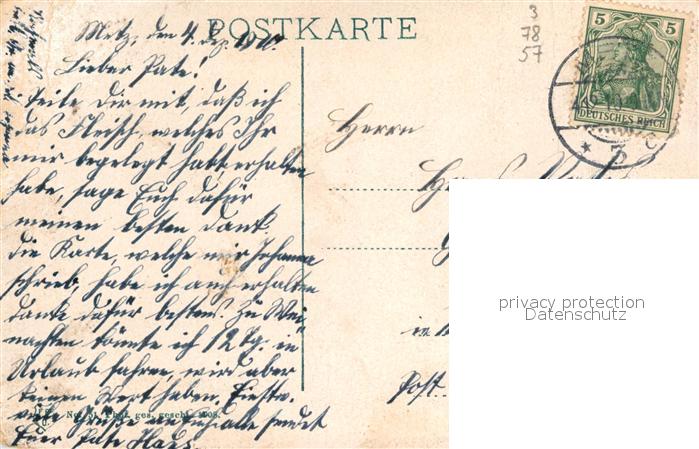 POSTKARTE
3
78
57
5 5
DEUTSCHES REICH
Metz, den 4. Dez. 1910.
Lieber Pate!
Teile dir mit, daß ich
das Fleisch, welches Ihr
mir beigelegt habt, erhalten
habe, sage Euch dafür
meinen besten Dank.
die Karte, welche mir Johanna
schrieb, habe ich auch erhalten
danke dafür bestens. Zu Wei-
nachten könnte ich 12 Tg. in
Urlaub fahren, wird aber
keinen Wert haben.
viele Grüße an Euch alle sendet
Euer Pate
ges. gesch. 1908.
Herrn
in
Post
privacy protection
Datenschutz